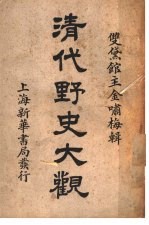 雙黛館主金嘯梅輯
清代野史大觀
上海新華書局發行